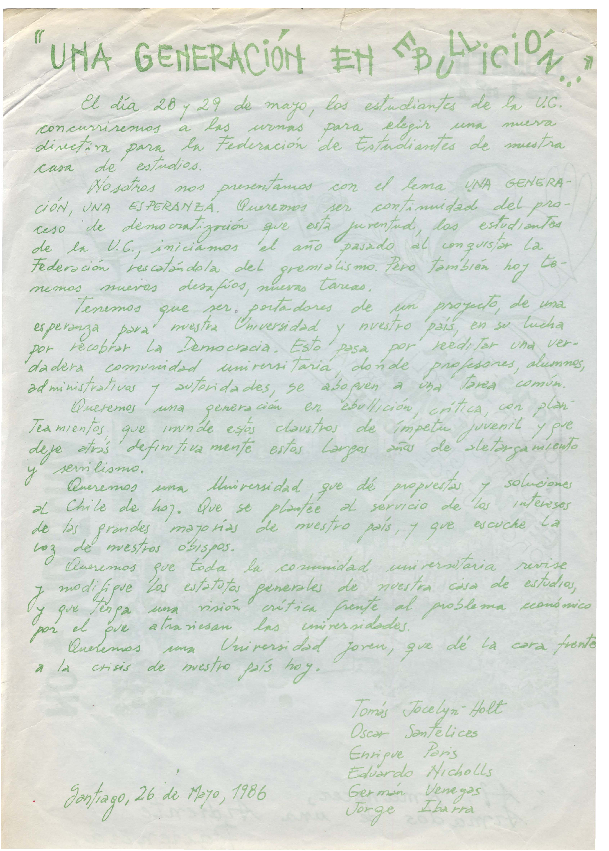 "UNA GENERACIÓN EN EBULLICIÓN..."
El día 28 y 29 de mayo, los estudiantes de la U.C.
concurriremos a las urnas para elegir una nueva
directiva para la Federación de Estudiantes de nuestra
casa de estudios.
Nosotros nos presentamos con el lema UNA GENERA-
CIÓN, UNA ESPERANZA. Queremos ser continuidad del pro-
ceso de democratización que esta juventud, los estudiantes
de la U.C., iniciamos el año pasado al conquistar la
Federación rescatándola del gremialismo. Pero también hoy te-
nemos nuevos desafíos, nuevas tareas.
Tenemos que ser portadores de un proyecto, de una
esperanza para nuestra Universidad y nuestro país, en su lucha
por recobrar la Democracia. Esto pasa por reeditar una ver-
dadera comunidad universitaria, donde profesores, alumnos,
administrativos y autoridades, se aboquen a una tarea común.
Queremos una generación en ebullición, crítica, con plan-
teamientos que inunde esos claustros de ímpetu juvenil y que
deje atrás definitivamente estos largos años de aletargamiento
y servilismo.
Queremos una Universidad, que dé propuestas y soluciones
al Chile de hoy. Que se plantée al servicio de los intereses
de las grandes mayorías de nuestro país, y que escuche la
voz de nuestros obispos.
Queremos que toda la comunidad universitaria revise
y modifique los estatutos generales de nuestra casa de estudios,
y que tenga una visión crítica frente al problema económico
por el que atraviesan las universidades.
Queremos una Universidad joven, que dé la cara frente
a la crisis de nuestro país hoy.
Tomás Jocelyn-Holt
Oscar Santelices
Enrique Paris
Eduardo Nicholls
Germán Venegas
Jorge Ibarra
Santiago, 26 de Mayo, 1986